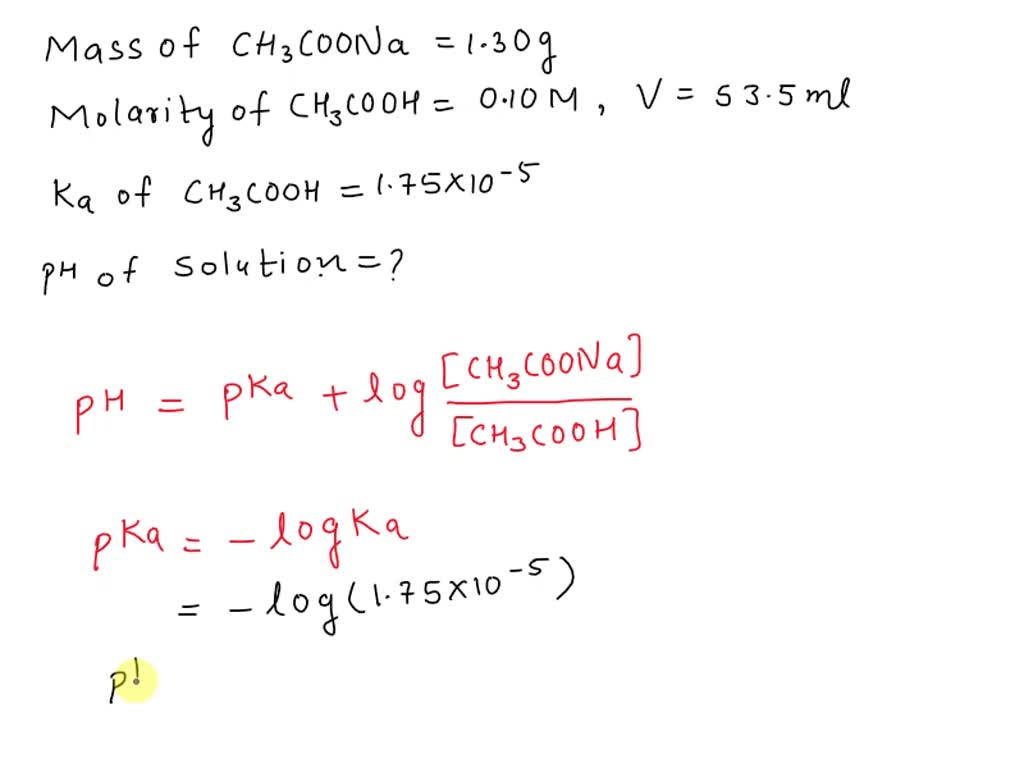 Mass of CH₃COONa = 1.30g
Molarity of CH₃COOH = 0.10M, V = 53.5 ml
Ka of CH₃COOH = 1.75×10⁻⁵
pH of solution = ?
pH = pKa + log [CH₃COONa] / [CH₃COOH]
pKa = - log Ka
= - log (1.75×10⁻⁵)
p